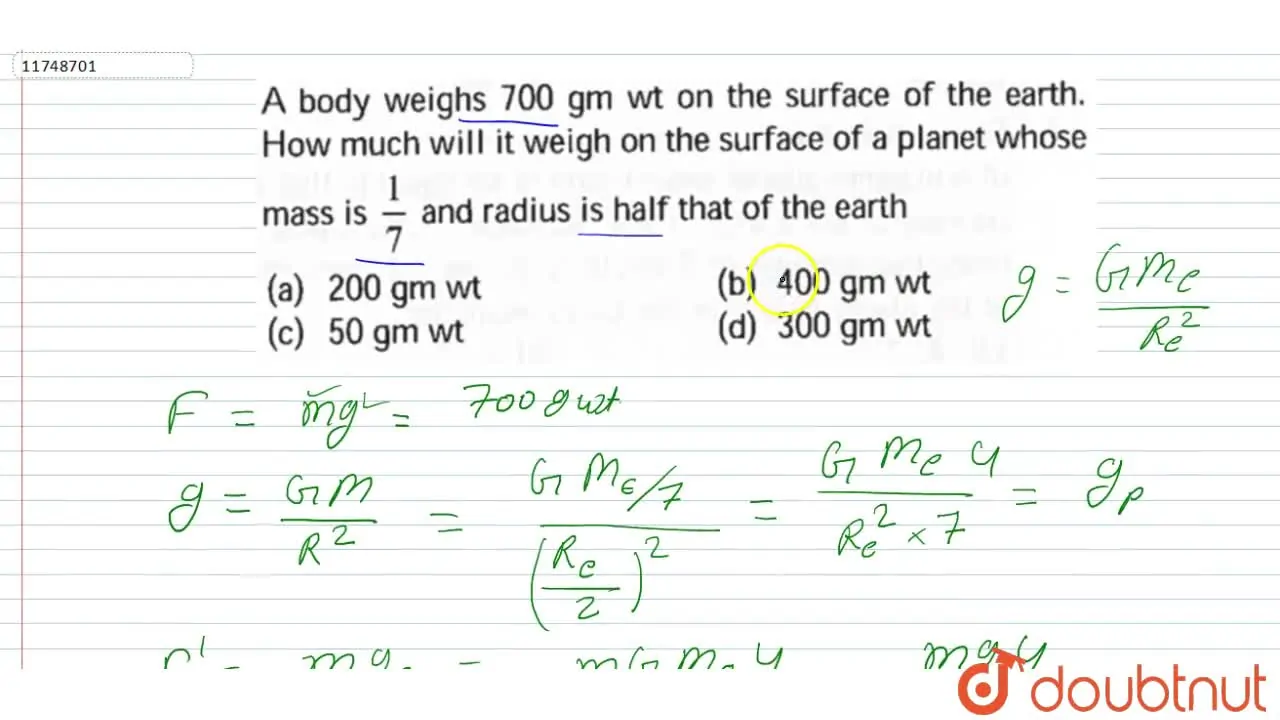 11748701
A body weighs 700 gm wt on the surface of the earth.
How much will it weigh on the surface of a planet whose
mass is 1/7 and radius is half that of the earth
(a) 200 gm wt (b) 400 gm wt
(c) 50 gm wt (d) 300 gm wt
g = GMe / Re²
F = mg = 700 g wt
g = GM / R² = G Me/7 / (Re/2)² = G Me 4 / Re² × 7 = gp
doubtnut